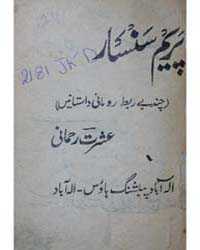 2181 JKD
پریم سنسار
(چند بے ربط رومانی داستانیں)
عشرت رحمانی
الہ آباد پبلشنگ ہاؤس - الہ آباد